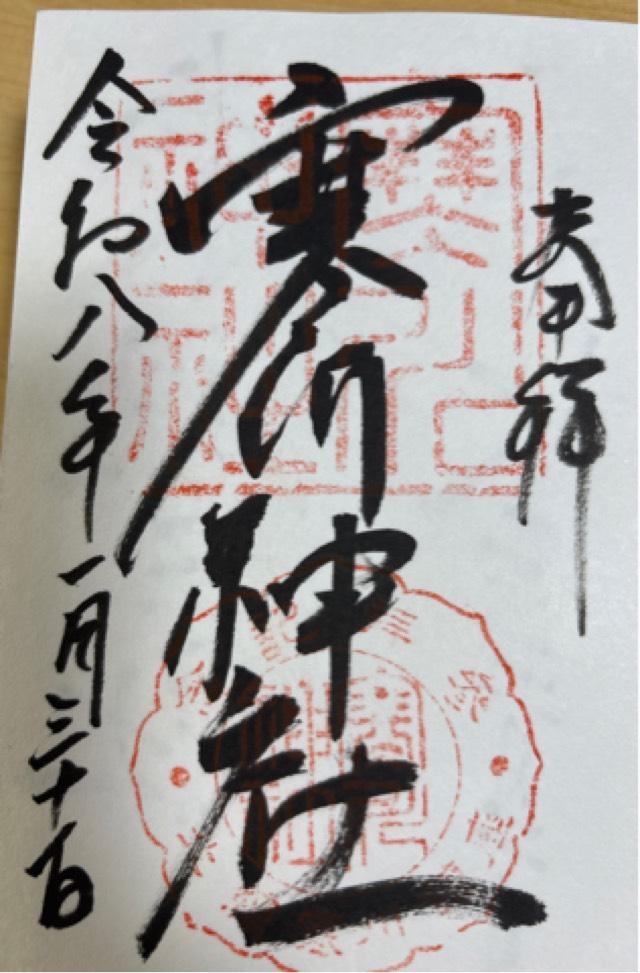 奉拝
寒川神社
令和八年一月三十一日